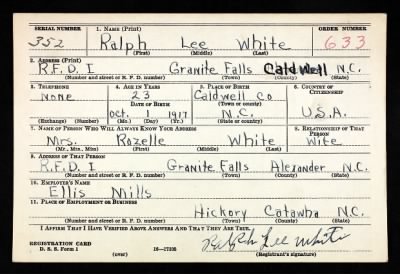 SERIAL NUMBER 1. NAME (Print) ORDER NUMBER
352 Ralph Lee White 633
(First) (Middle) (Last)
2. ADDRESS (Print)
R.F.D. I Granite Falls Caldwell N.C.
(Number and street or R. F. D. number) (Town) (County) (State)
3. TELEPHONE 4. AGE IN YEARS 5. PLACE OF BIRTH 6. COUNTRY OF CITIZENSHIP
None 23 Caldwell Co
DATE OF BIRTH (Town or county)
Oct. 1 1917 N.C. U.S.A.
(Exchange) (Number) (Mo.) (Day) (Yr.) (State or country)
7. NAME OF PERSON WHO WILL ALWAYS KNOW YOUR ADDRESS 8. RELATIONSHIP OF THAT PERSON
Mrs. Rozelle White Wife
(Mr., Mrs., Miss) (First) (Middle) (Last)
9. ADDRESS OF THAT PERSON
R.F.D. I Granite Falls Alexander N.C.
(Number and street or R. F. D. number) (Town) (County) (State)
10. EMPLOYER'S NAME
Ellis Mills
11. PLACE OF EMPLOYMENT OR BUSINESS
Hickory Catawba N.C.
(Number and street or R. F. D. number) (Town) (County) (State)
I AFFIRM THAT I HAVE VERIFIED ABOVE ANSWERS AND THAT THEY ARE TRUE.
REGISTRATION CARD
D. S. S. Form 1 16—17105 Ralph Lee White
(over) (Registrant's signature)